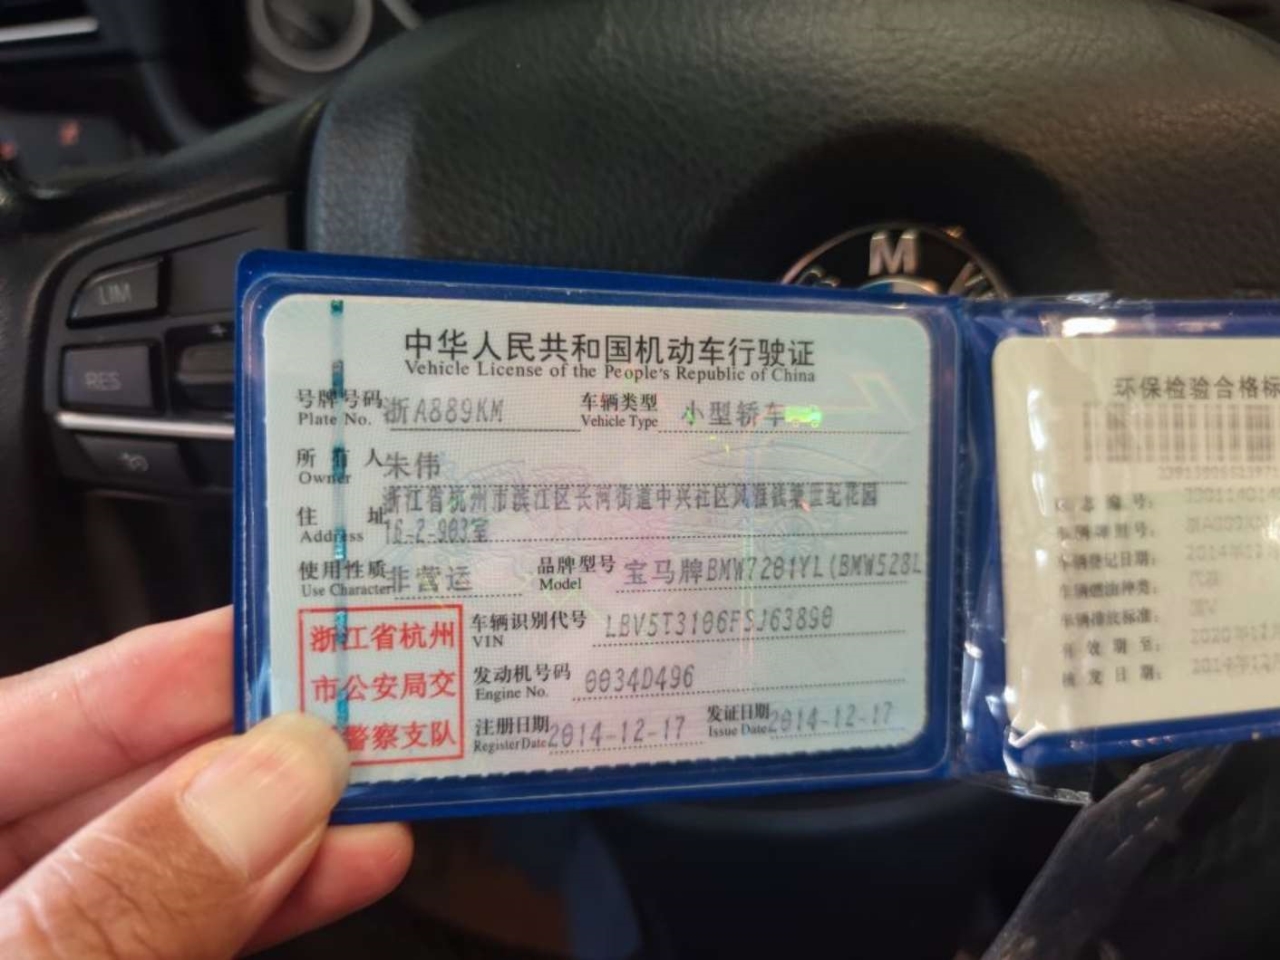 LIM
RES
M
中华人民共和国机动车行驶证
Vehicle License of the People's Republic of China
号牌号码 浙A889KM 车辆类型 小型轿车
Plate No. Vehicle Type
所有人 朱伟
Owner
住址 浙江省杭州市滨江区长河街道中兴社区风雅钱塘世纪花园
Address 16-2-903室
使用性质 非营运 品牌型号 宝马牌BMW7201YL(BMW528L
Use Character Model
车辆识别代号 LBV5T3106FSJ63890
VIN
发动机号码 0034D496
Engine No.
注册日期 2014-12-17 发证日期 2014-12-17
Register Date Issue Date
浙江省杭州
市公安局交
警察支队
环保检验合格标
车辆登记日期:
车辆燃油种类:
车辆排放标准:
有效期至: 2020年12
核发日期: 2014年12